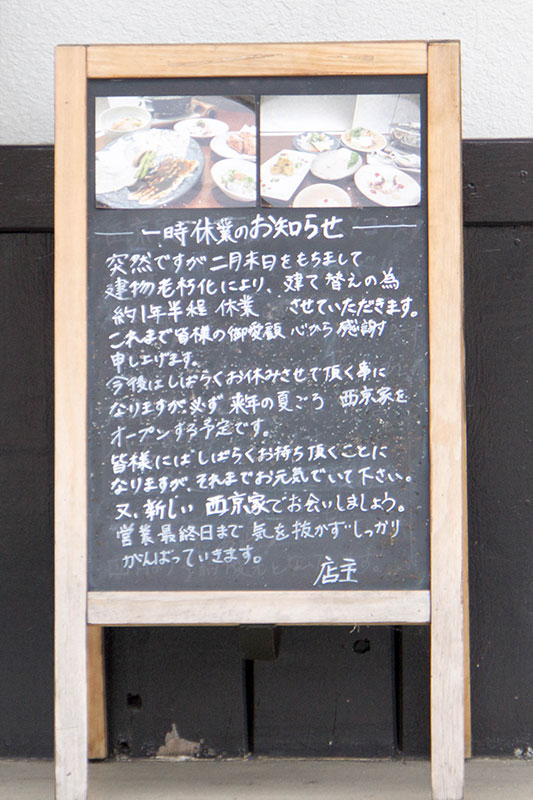 一時休業のお知らせ
突然ですが二月末日をもちまして
建物老朽化により、建て替えの為
約1年半程 休業 させていただきます。
これまで皆様の御愛顧 心から感謝
申し上げます。
今後はしばらくお休みさせて頂く事に
なりますが、必ず 来年の夏ごろ 西京家を
オープンする予定です。
皆様にはしばらくお持ち頂くことに
なりますが、それまでお元気でいて下さい。
又、新しい 西京家でお会いしましょう。
営業最終日まで 気を抜かずしっかり
がんばっていきます。
店主